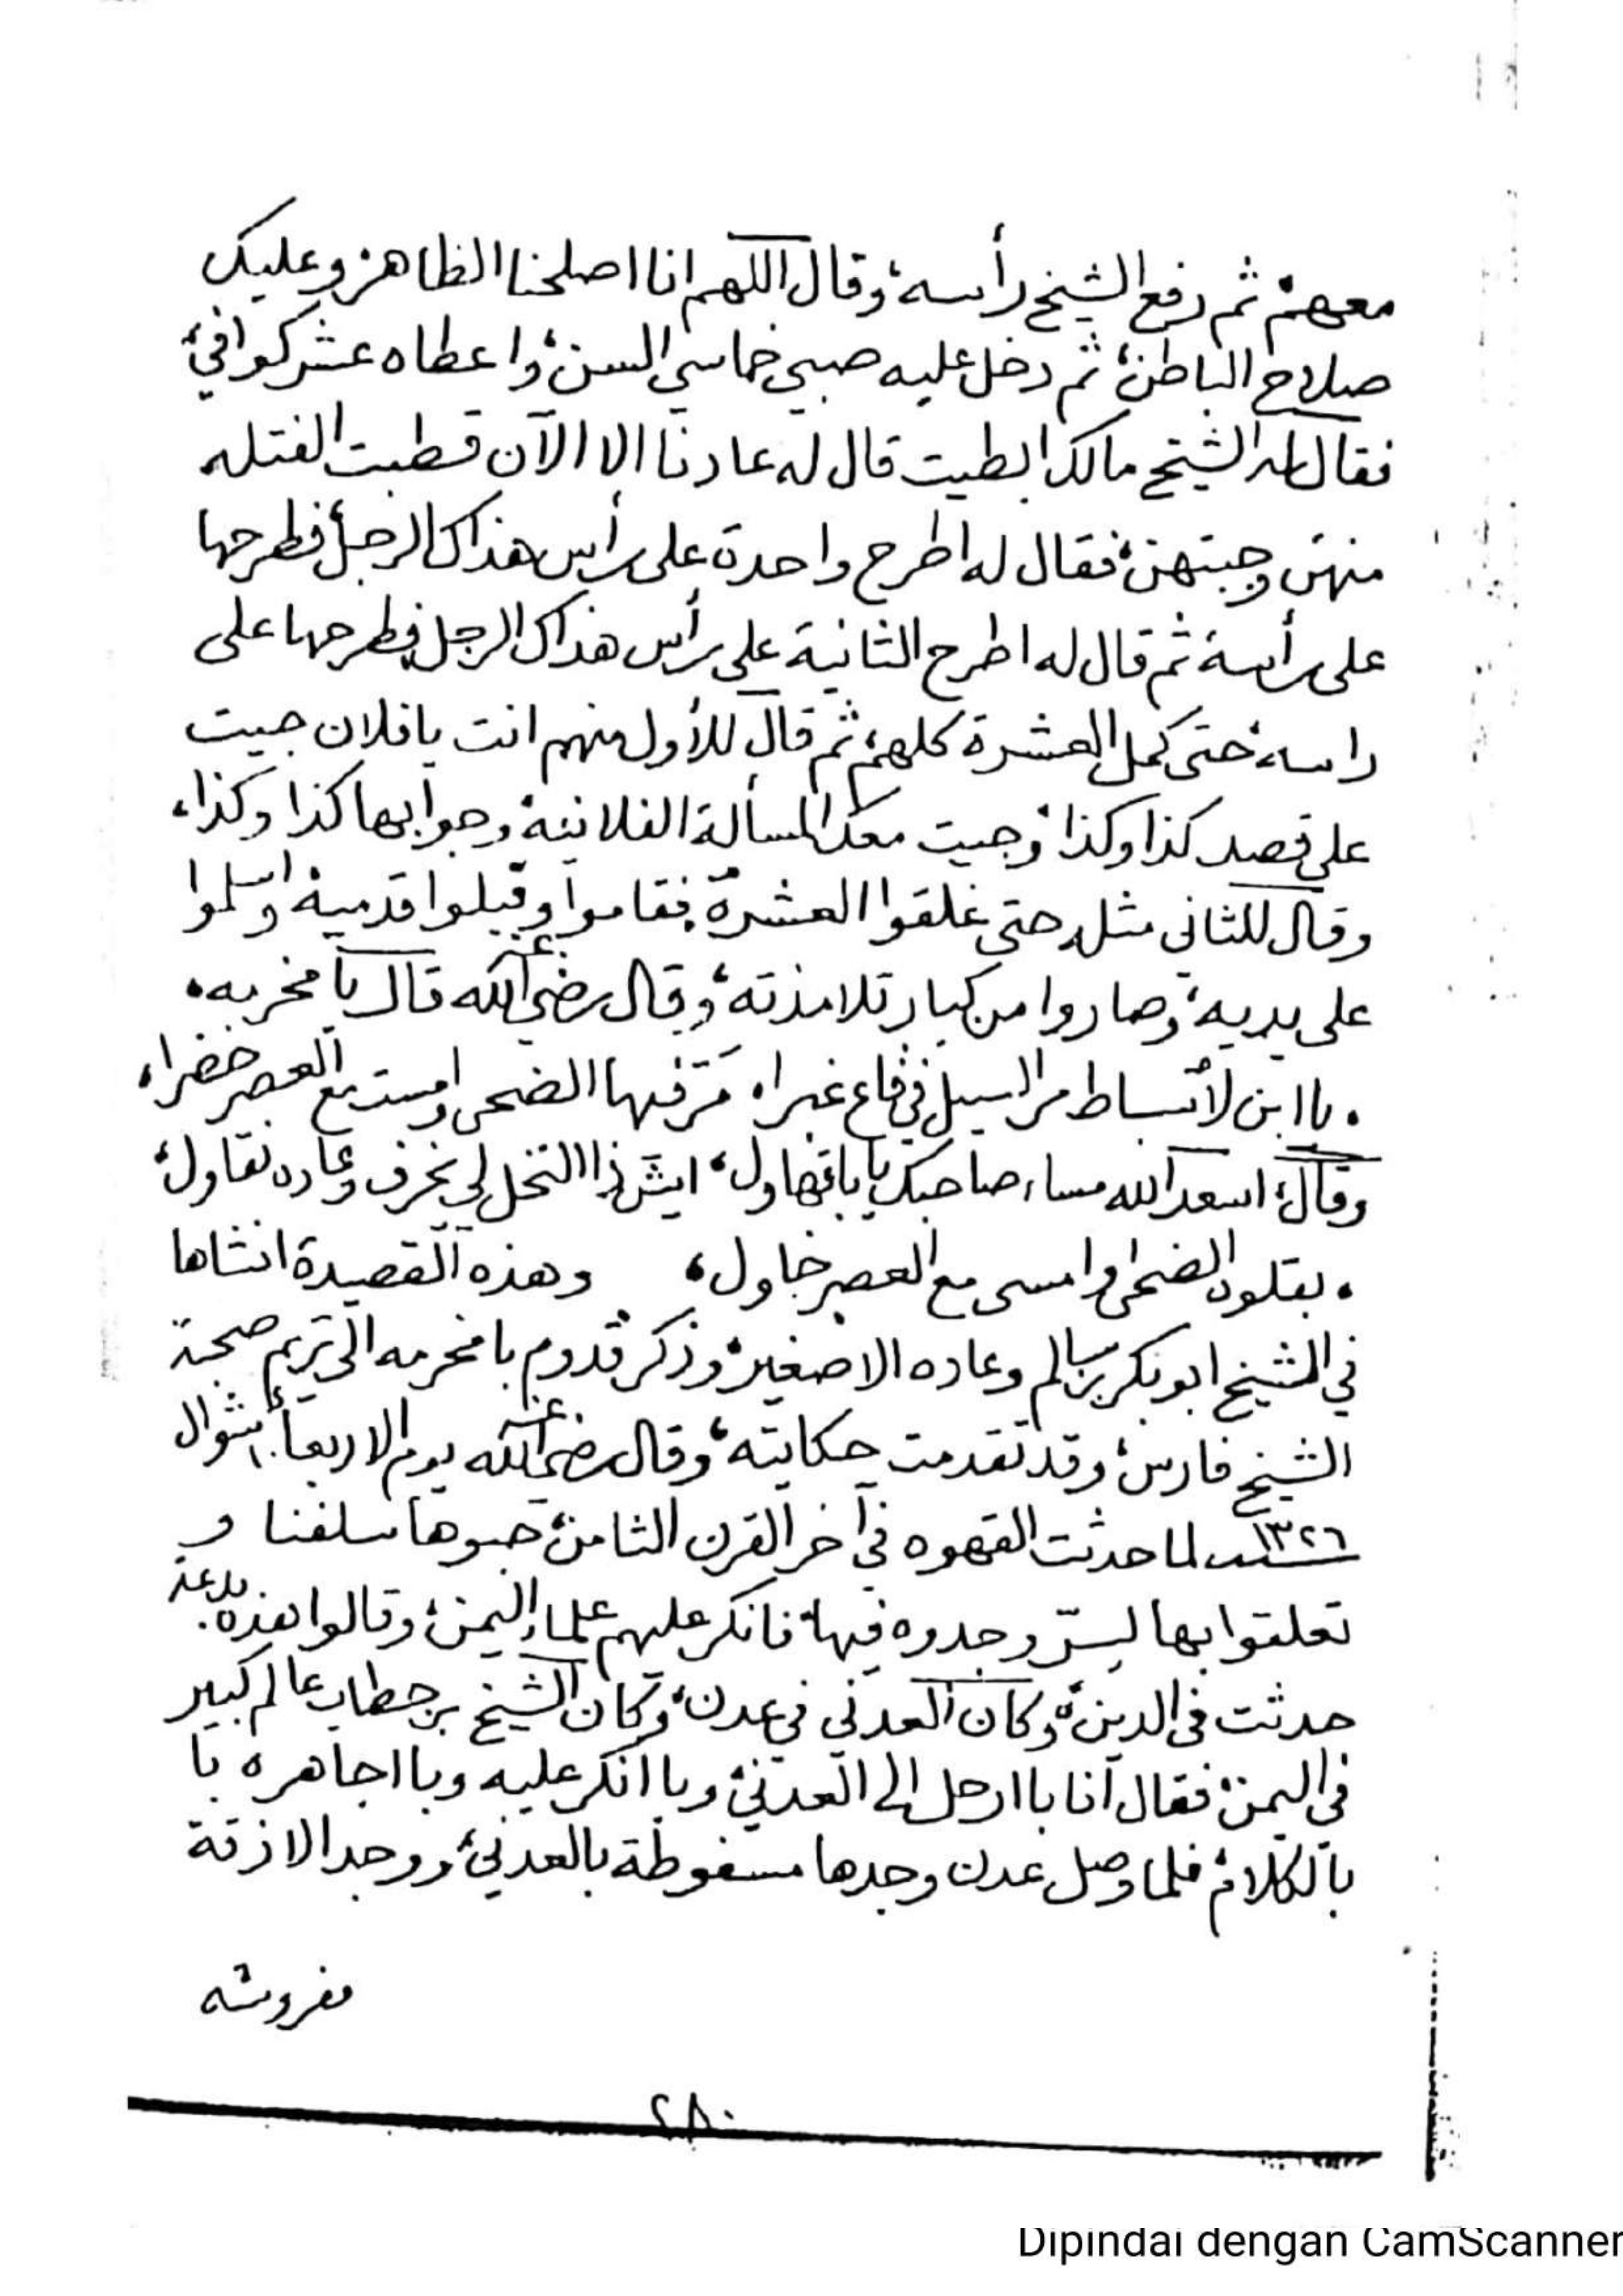 معهم، ثم رفع الشيخ رأسه، وقال اللهم انا اصلحنا الظاهر، وعليك
صلاح الباطن، ثم دخل عليه صبي خماسي السن، واعطاه عشر كوافي،
فقال له الشيخ مالك ابطيت قال له عادنا الا الآن قطبت الفتله
منهن وجبتهن، فقال له اطرح واحدة على رأس هذاك الرجل، فطرحها
على رأسه ثم قال له اطرح الثانية على رأس هذاك الرجل فطرحها على
راسه، حتى كمل العشرة كلهم، ثم قال للأول منهم انت يا فلان جيت
على قصد كذا وكذا، وجيت معك المسألة الفلانية، وجوابها كذا وكذا،
وقال للثاني مثله حتى غلقوا العشرة، فقاموا وقبلوا قدميه، واسلموا
على يديه، وصاروا من كبار تلامذته، وقال رضي الله عنه قال با مخرمه،
يا ابن لأنساط مر السيل في قاع غبراء مر فيها الضحى وامست مع العصر خضراء،
وقال، اسعد الله مساء، صاحبك يا باقهاول، ايش ذا النخل لي يخرف وعاده نقاول،
بقلوه الضحى وامسى مع العصر خاول، وهذه القصيدة انشاها
في الشيخ ابوبكر بن سالم وعاده الا صغير، وذكر قدوم با مخرمه الى تريم صحبة
الشيخ فارس، وقد تقدمت حكايته، وقال رضي الله عنه يوم الاربعاء شوال
سنة ١٣٢٦ لما حدثت القهوه في آخر القرن الثامن، حبوها سلفنا و
تعلقوا بها لسرّ وجدوه فيها، فانكر عليهم علماء اليمن، وقالوا هذه بدعة
حدثت في الدين، وكان العدني في عدن، وكان الشيخ بن حطاب عالم كبير
في اليمن، فقال انا با ارحل الى العدني، وبا انكر عليه وبا اجاهره با
بالكلام، فلما وصل عدن وجدها مسغوطة بالعدني، ووجد الازقة
مفروشه
٢٨٠
Dipindai dengan CamScanner